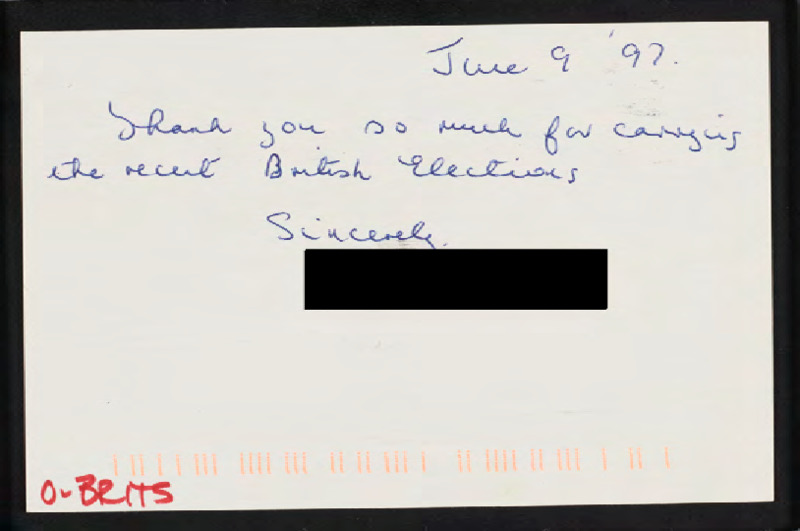 June 9 '97.
Thank you so much for carrying
the recent British Elections
Sincerely.
O-BRITS